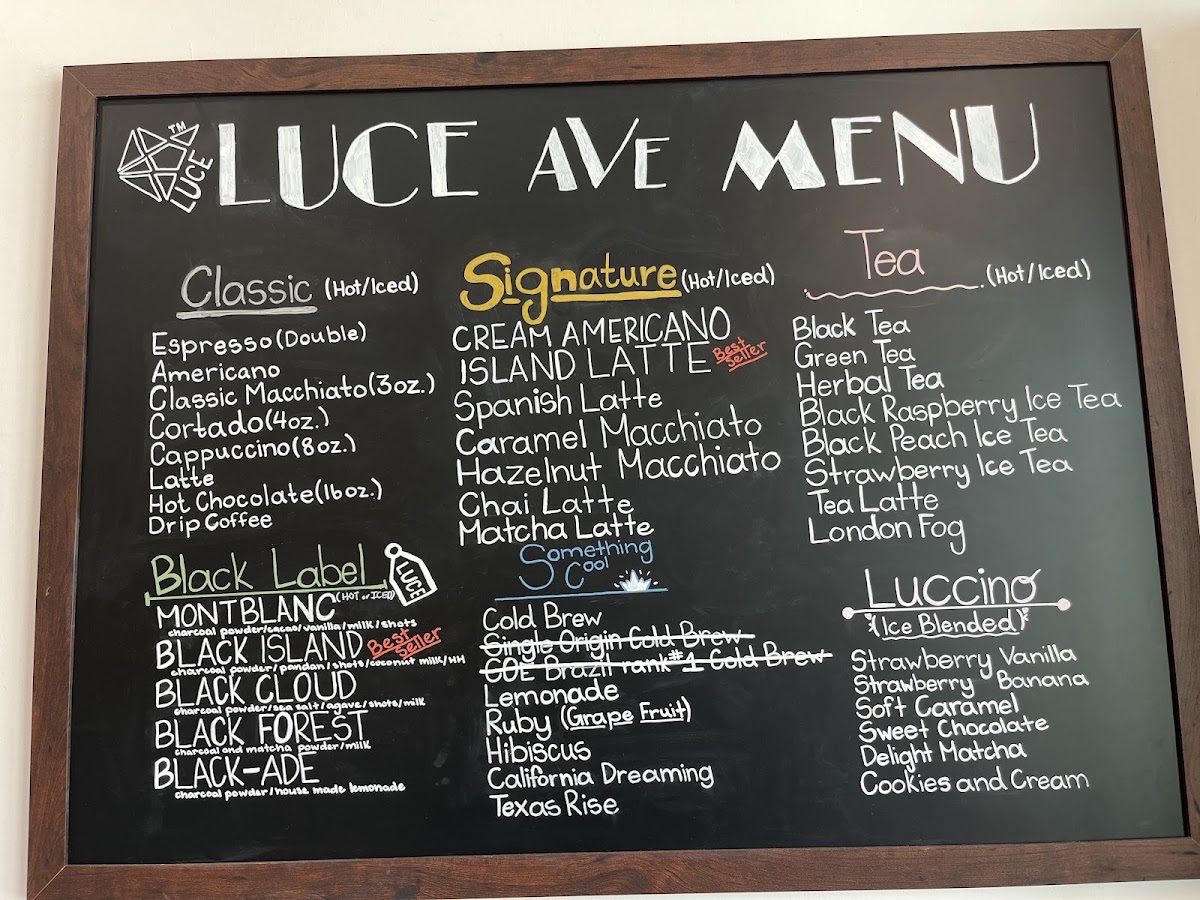 LUCE™
LUCE AVE MENU
Classic (Hot/Iced)
Espresso (Double)
Americano
Classic Macchiato (3oz.)
Cortado (4oz.)
Cappuccino (8oz.)
Latte
Hot Chocolate (16oz.)
Drip Coffee
Black Label LUCE
(HOT or ICED)
MONTBLANC
charcoal powder/cacao/vanilla/milk/shots
BLACK ISLAND Best Seller
charcoal powder/pandan/shots/coconut milk/HH
BLACK CLOUD
charcoal powder/sea salt/agave/shots/milk
BLACK FOREST
charcoal and matcha powder/milk
BLACK-ADE
charcoal powder/house made lemonade
Signature (Hot/Iced)
CREAM AMERICANO
ISLAND LATTE Best Seller
Spanish Latte
Caramel Macchiato
Hazelnut Macchiato
Chai Latte
Matcha Latte
Something
Cool
Cold Brew
Single Origin Cold Brew
COE Brazil rank #1 Cold Brew
Lemonade
Ruby (Grape Fruit)
Hibiscus
California Dreaming
Texas Rise
Tea (Hot/Iced)
Black Tea
Green Tea
Herbal Tea
Black Raspberry Ice Tea
Black Peach Ice Tea
Strawberry Ice Tea
Tea Latte
London Fog
Luccino
(Ice Blended)
Strawberry Vanilla
Strawberry Banana
Soft Caramel
Sweet Chocolate
Delight Matcha
Cookies and Cream